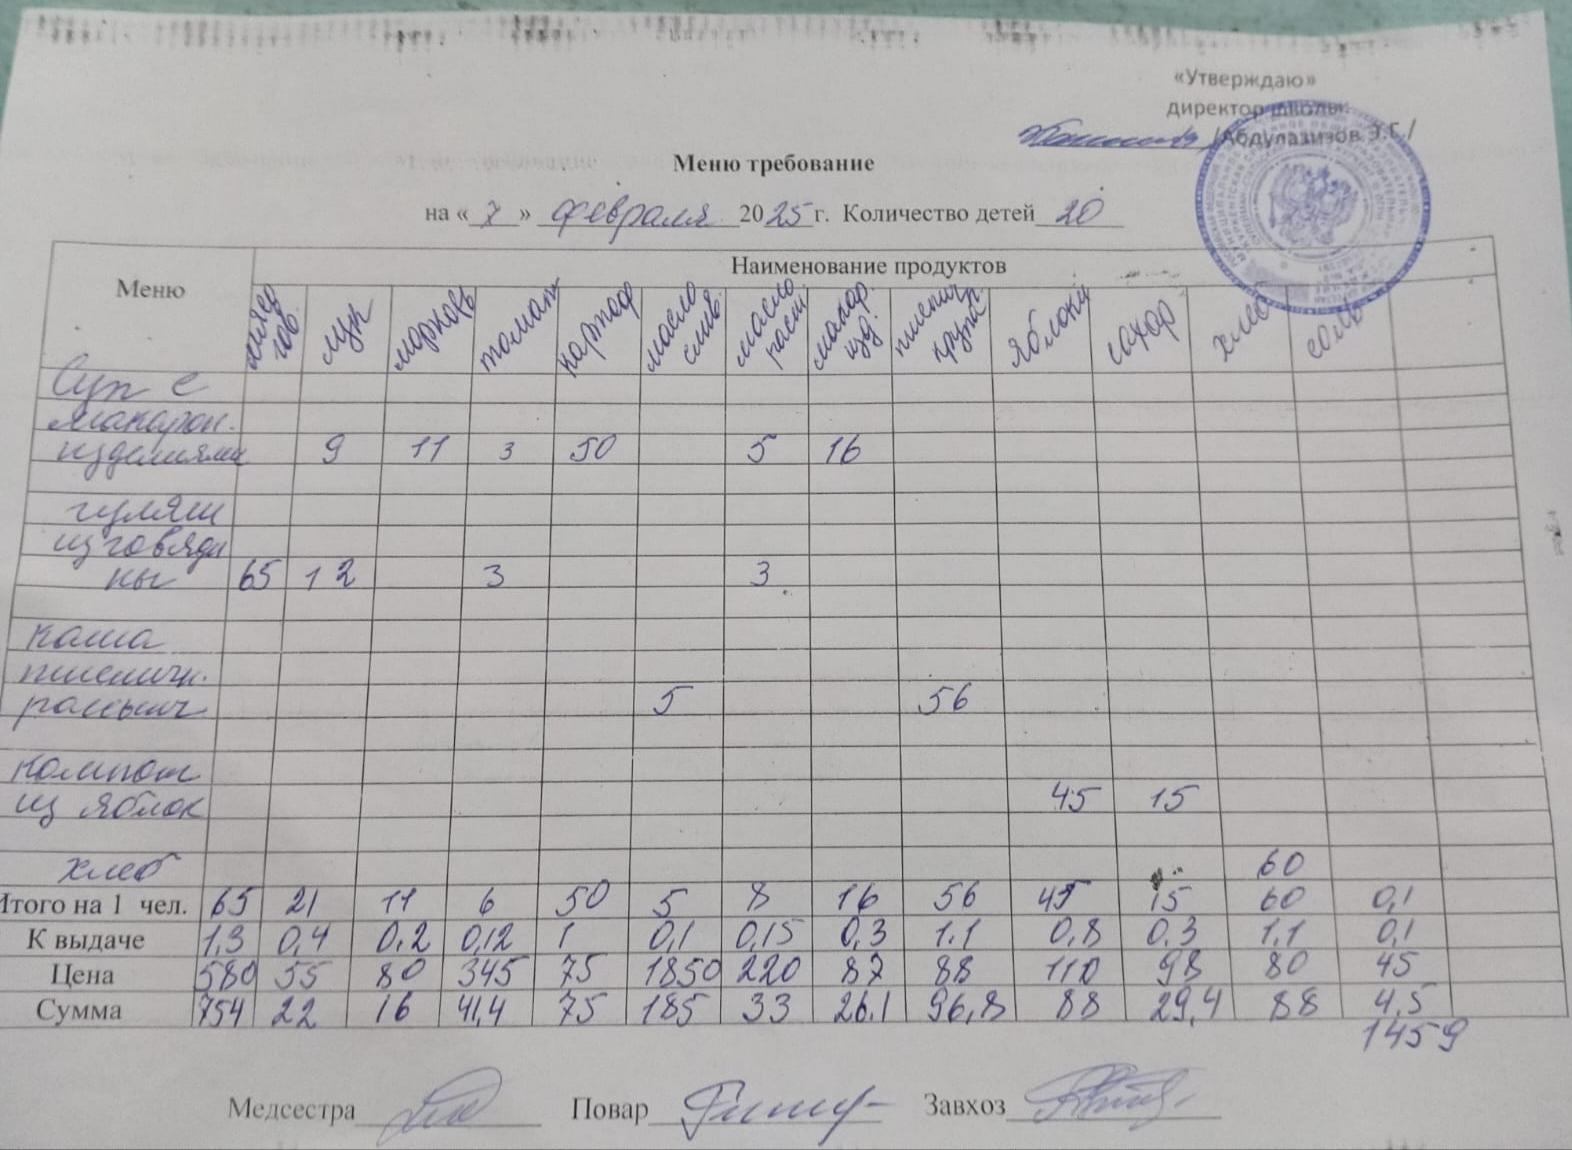 «Утверждаю»
директор школы:
/Абдулазизов Э.Г./
Меню требование
на «7» февраля 2025 г. Количество детей 20
Меню Наименование продуктов
мясо гов. лук морковь томат картоф масло слив. масло раст. макар. изд. пшенич. крупа яблоки сахар хлеб соль
Суп с
макарон.
изделиями 9 11 3 50 5 16
гуляш
из говяди
ны 65 12 3 3
каша
пшеничн.
рассыпч 5 56
компот
из яблок 45 15
хлеб 60
Итого на 1 чел. 65 21 11 6 50 5 8 16 56 45 15 60 0,1
К выдаче 1,3 0,4 0,2 0,12 1 0,1 0,15 0,3 1.1 0,8 0.3 1,1 0,1
Цена 580 55 80 345 75 1850 220 87 88 110 98 80 45
Сумма 754 22 16 41,4 75 185 33 26.1 96,8 88 29,4 88 4,5
1459
Медсестра Повар Завхоз